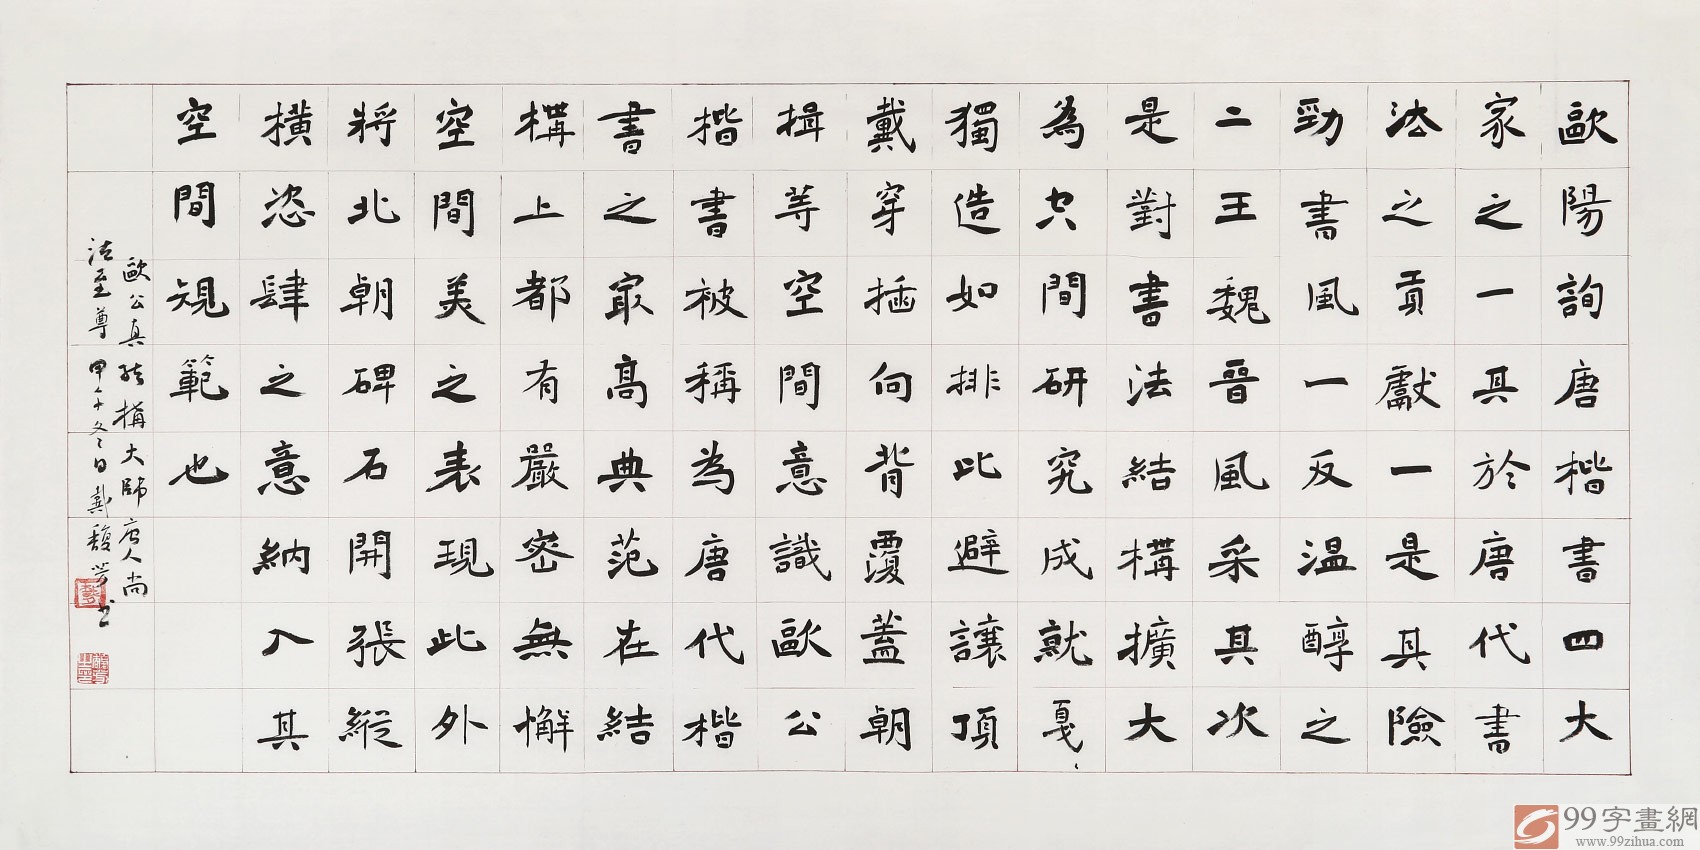 歐陽詢唐楷書四大
家之一其於唐代書
法之貢獻一是其險
勁書風一反溫醇之
二王魏晉風采其次
是對書法結構擴大
為空間研究成就戛〻
獨造如排比避讓頂
戴穿插向背覆蓋朝
揖等空間意識歐公
楷書被稱為唐代楷
書之最高典范在結
構上都有嚴密無懈
空間美之表現此外
將北朝碑石開張縱
橫恣肆之意納入其
空間規範也
歐公真能稱大師唐人尚
法至尊甲午冬日戴馥芳書
99字畫網
www.99zihua.com